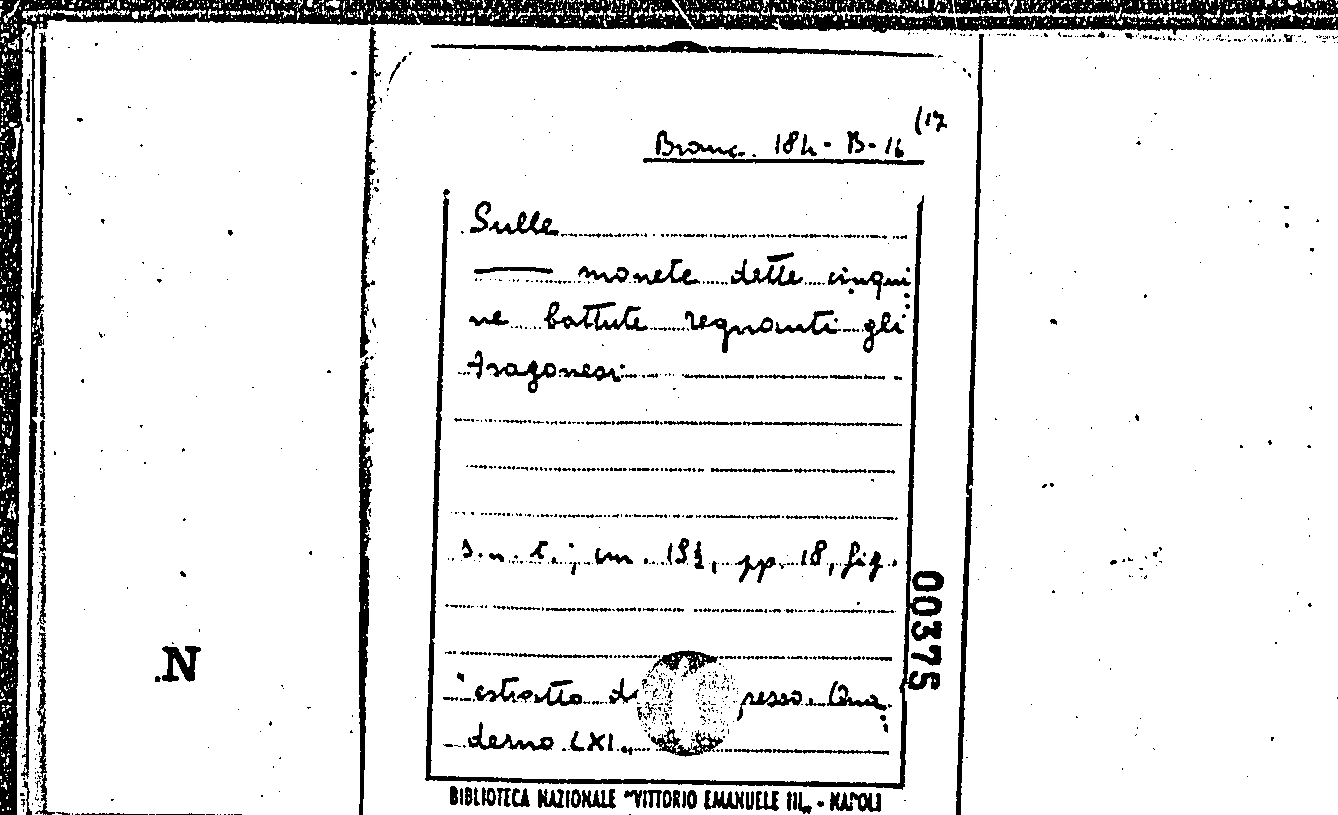 (17
Branc. 18h - B-16
Sulle
—— monete dette cinqui
ne battute regnanti gli
Aragonesi
s.n.t.; cm. 19½, pp. 18, fig.
00375
"estratto d resso. Qua
derno LXI„
.N
BIBLIOTECA NAZIONALE "VITTORIO EMANUELE III„ - NAPOLI